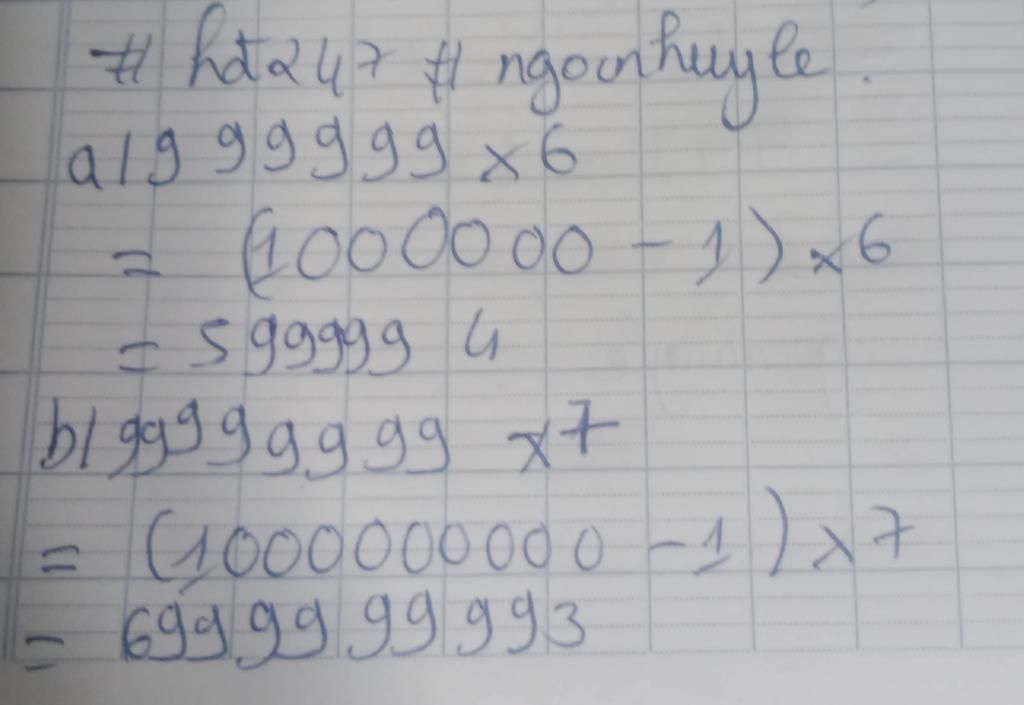 # hdt247 # ngocnhuyle.
a/ 999999 x 6
= (1000000 - 1) x 6
= 599999 4
b/ 99999999 x 7
= (1000000000 - 1) x 7
= 6999999993